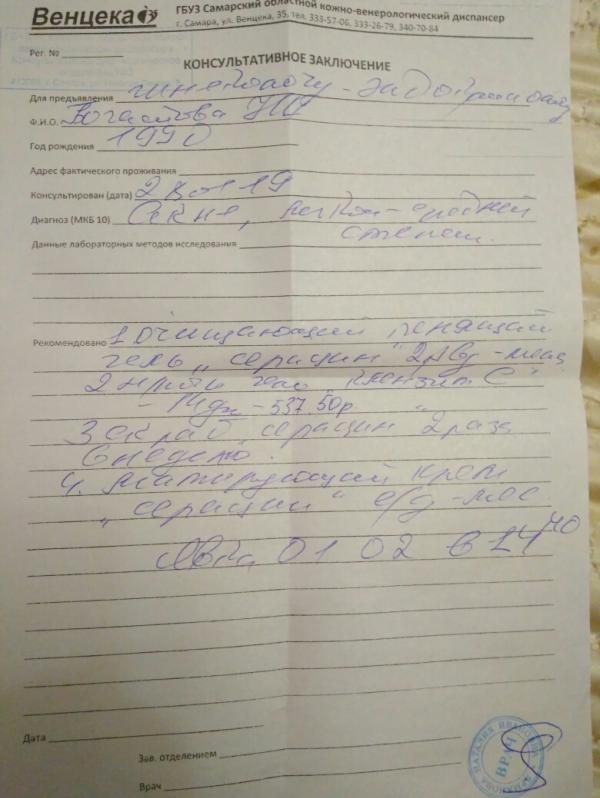 Венцека
ГБУЗ Самарский областной кожно-венерологический диспансер
г. Самара, ул. Венцека, 35, тел. 333-57-06, 333-26-79, 340-70-84
Рег. №
КОНСУЛЬТАТИВНОЕ ЗАКЛЮЧЕНИЕ
Для предъявления гинекологу - эндокринологу
Ф.И.О.
Год рождения 1990
Адрес фактического проживания
Консультирован (дата)
Диагноз (МКБ 10) Акне, легкой-средней
степени.
Данные лабораторных методов исследования
Рекомендовано 1 очищающий пенящий
гель "серацин" 2р/д - мес
2 н/ночь гель "клензит С"
- 537.50р.
3 скраб "серацин" 2 раза
в неделю.
4. матирующий крем
"серацин" - мес.
Явка 01 02 в 14 40
Дата
Зав. отделением
Врач
ВРАЧ